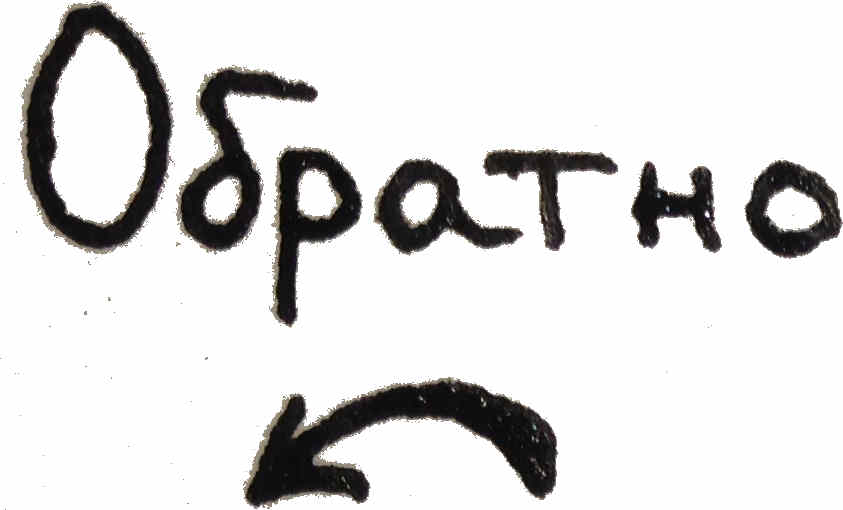 Обратно